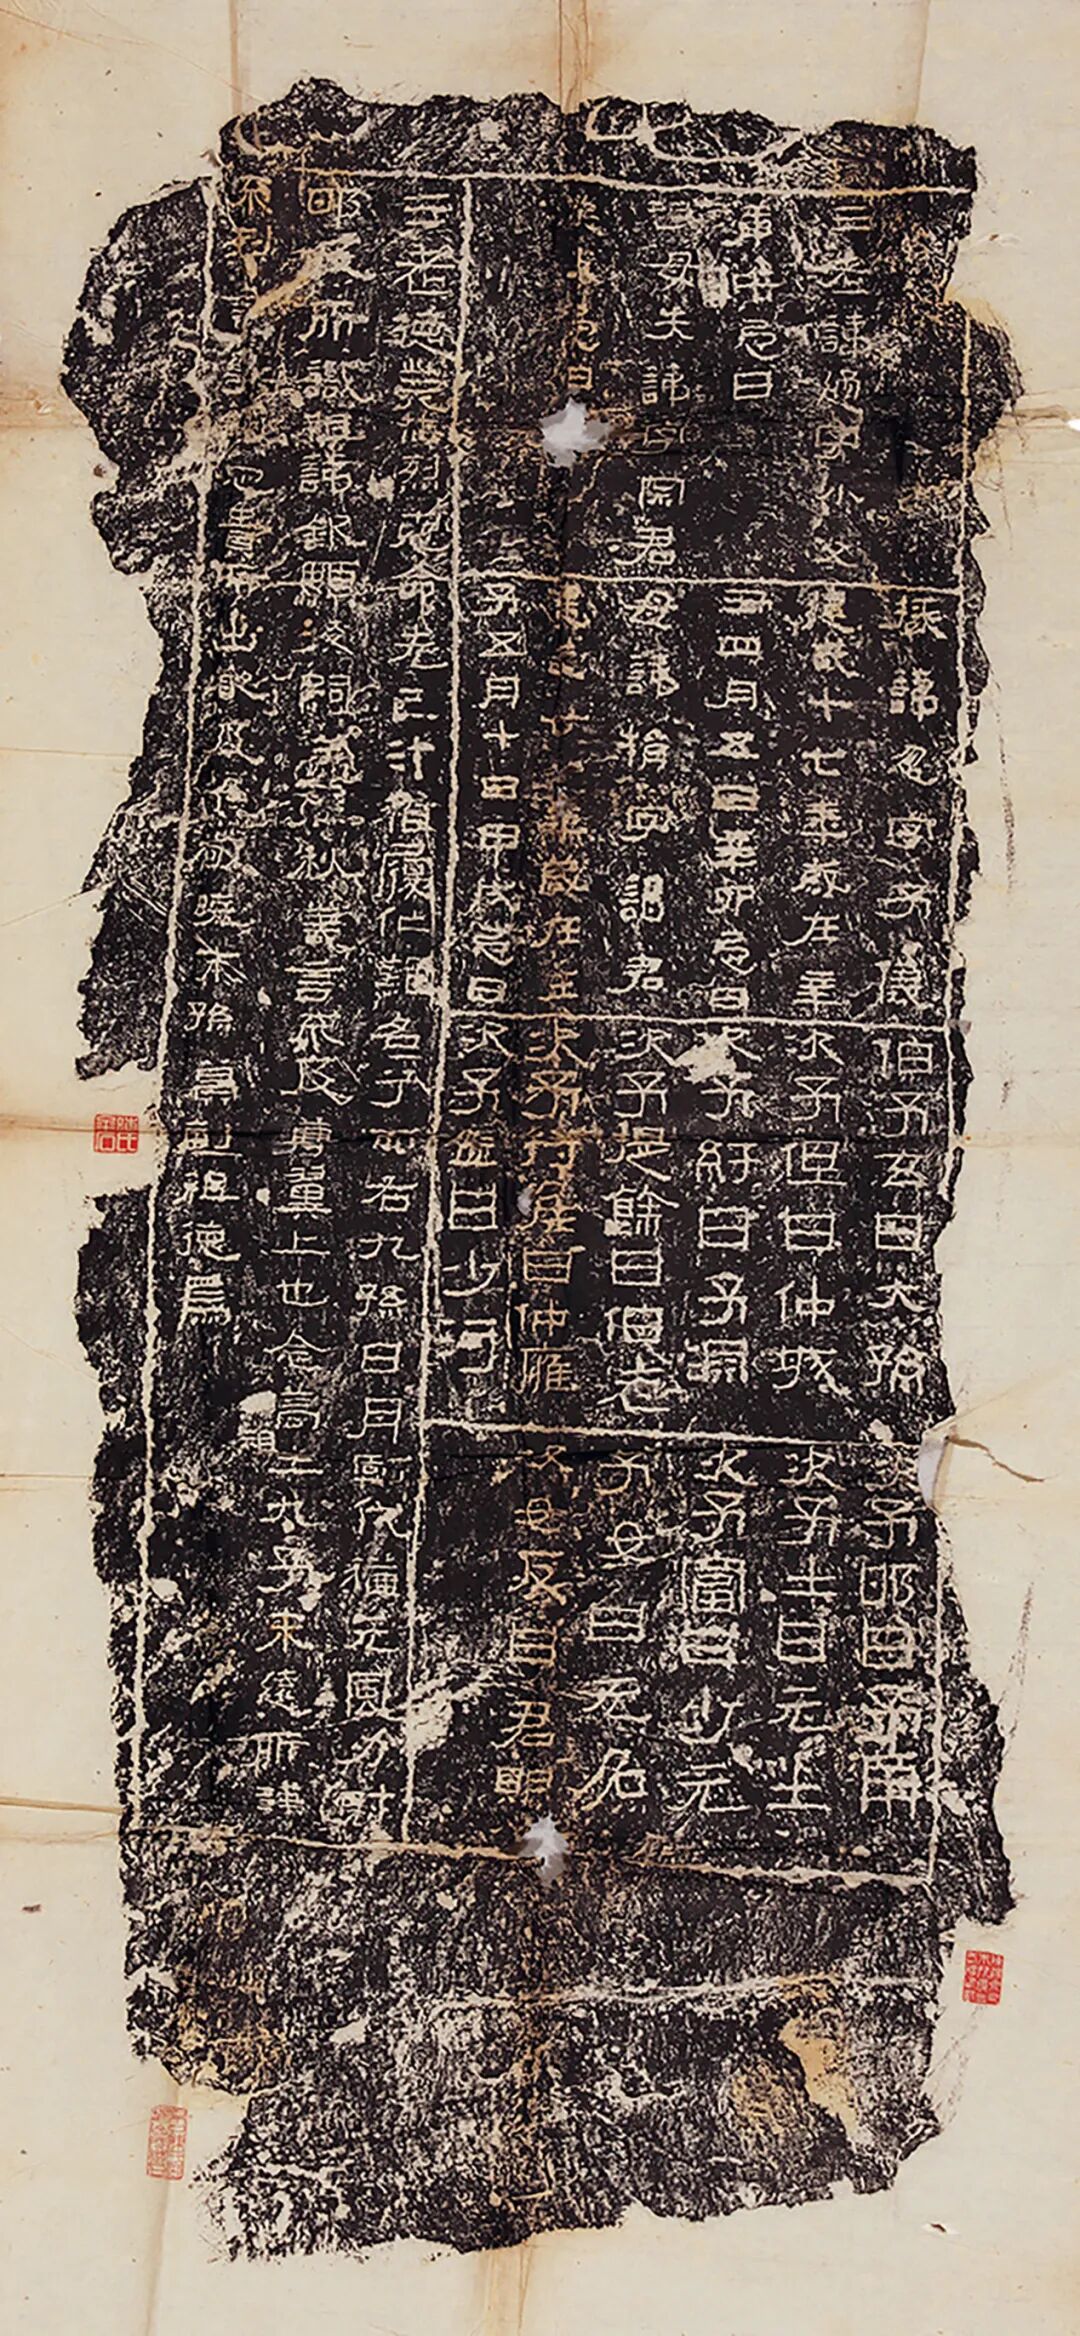 三老諱通字小父
庚午忌日
祖母失諱字宗君
癸未忌日
掾諱忽字子儀
建武十七年歲在辛
丑四月五日辛卯忌日
母諱捐字謁君
建武廿八年歲在壬
子五月十日甲戌忌日
伯子玄曰大孫
次子但曰仲城
次子紆曰子淵
次子提餘曰伯老
次子持侯曰仲雍
次子盈曰少河
次子邯曰子南
次子士曰元士
次子富曰少元
子女曰无名
次女反曰君明
三老德業赫烈克命先己汁稽履仁難名兮而右九孫日月虧代猶元風力射
邯及所識祖諱欽顯後嗣蓋春秋義言不及尊翼上也念高祖九子未遠所諱
不列言事觸忌貴所出嚴及焦敬曉末孫冀副祖德焉